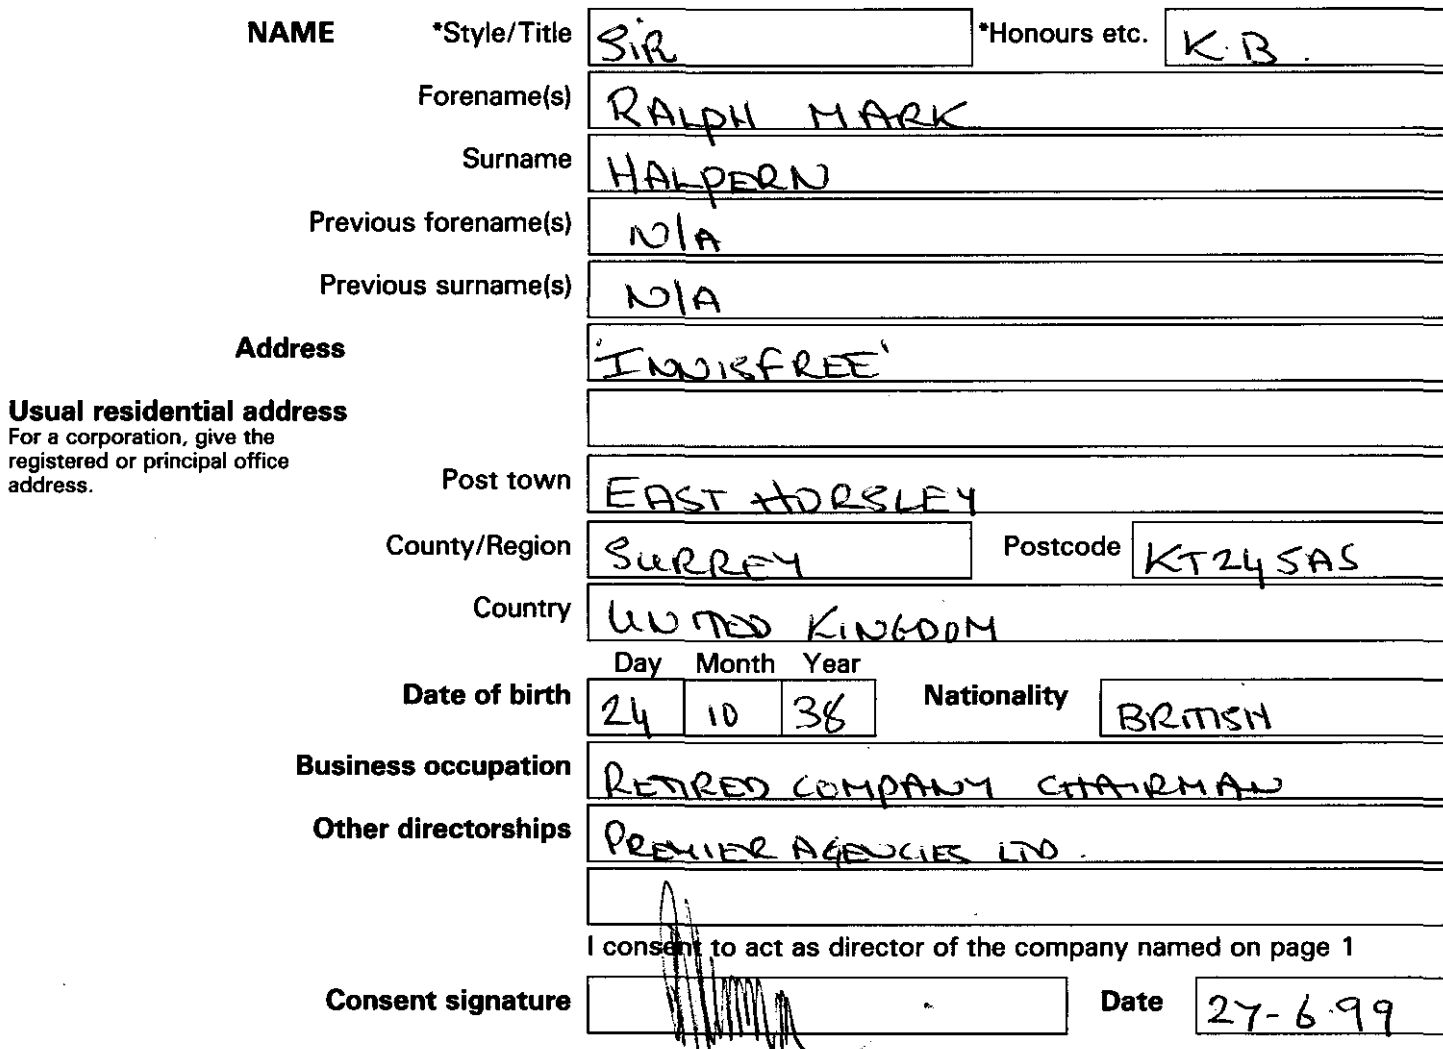 NAME *Style/Title SiR *Honours etc. K.B.
Forename(s) RALPH MARK
Surname HALPERN
Previous forename(s) N/A
Previous surname(s) N/A
Address 'INNISFREE'
Usual residential address
For a corporation, give the
registered or principal office
address.
Post town EAST HORSLEY
County/Region SURREY Postcode KT24 5AS
Country UNITED KINGDOM
Day Month Year
Date of birth 24 10 38 Nationality BRITISH
Business occupation RETIRED COMPANY CHAIRMAN
Other directorships PREMIER AGENCIES LTD.
I consent to act as director of the company named on page 1
Consent signature Date 27-6.99